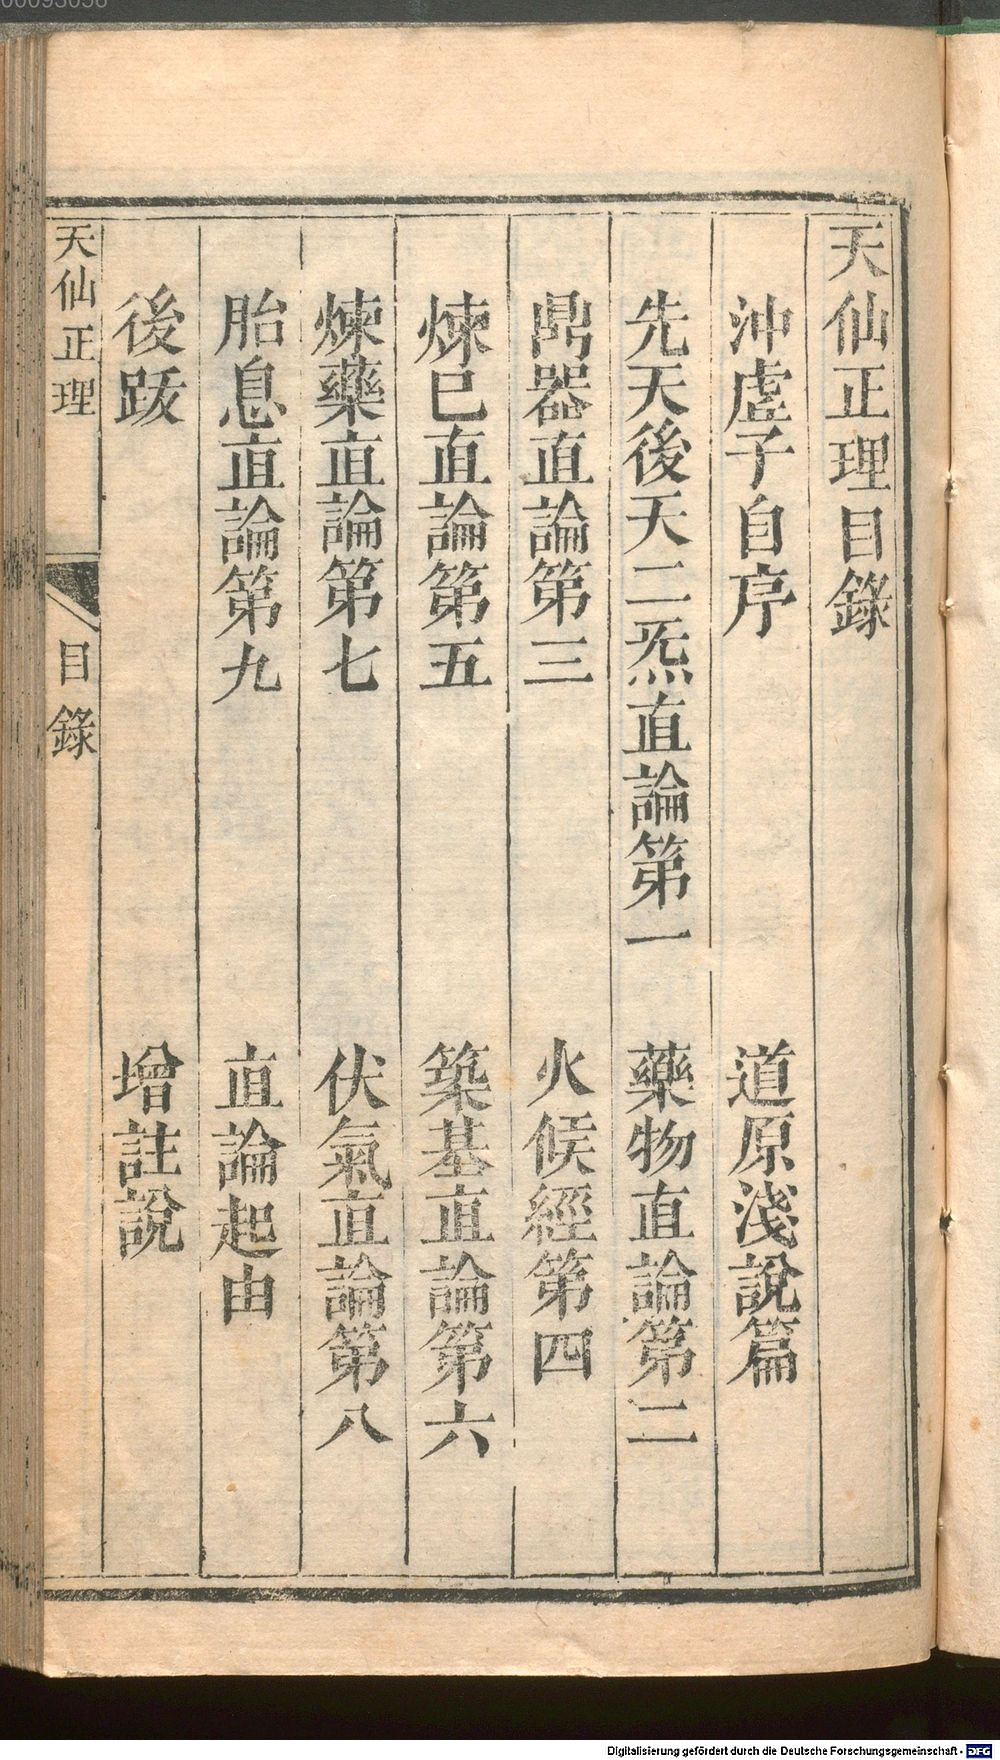 天仙正理目錄
沖虛子自序
道原淺說篇
先天後天二炁直論第一
藥物直論第二
鼎器直論第三
火候經第四
煉已直論第五
築基直論第六
煉藥直論第七
伏氣直論第八
胎息直論第九
直論起由
後跋
增註說
天仙正理
目錄
Digitalisierung gefördert durch die Deutsche Forschungsgemeinschaft - DFG